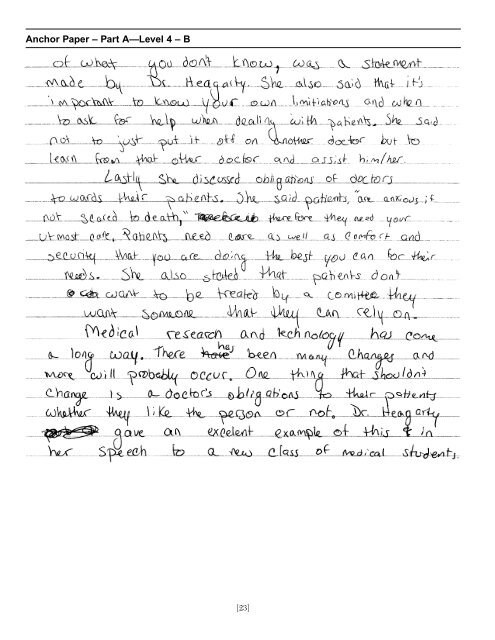 Anchor Paper – Part A—Level 4 – B
of what you don't know, was a statement
made by Dr. Heagarty. She also said that it's
important to know your own limitiations and when
to ask for help when dealing with patients. She said
not to just put it off on another doctor but to
learn from that other doctor and assist him/her.
Lastly she discussed obligations of doctors
towards their patients. She said patients, "are anxious if
not scared to death," therefore they need your
utmost care. Patients need care as well as comfort and
security that you are doing the best you can for their
needs. She also stated that patients don't
want to be treated by a comittee they
want someone that they can rely on.
Medical research and technology has come
a long way. There has been many changes and
more will probably occur. One thing that shouldn't
change is a doctor's obligations to their patients
whether they like the person or not. Dr. Heagarty
gave an excelent example of this in
her speech to a new class of medical students.
[23]